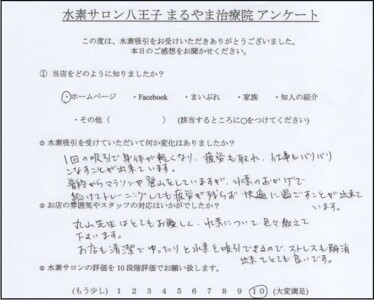 水素サロン八王子 まるやま治療院 アンケート
この度は、水素吸引をお受けいただきありがとうございました。
本日のご感想をお聞かせください。
① 当店をどのように知りましたか?
・ホームページ ・Facebook ・まいぷれ ・家族 ・知人の紹介
・その他 ( ) (該当するところに○をつけてください)
② 水素吸引を受けていただいて何か変化はありましたか?
1回の吸引で身体が軽くなり、疲労も取れ、仕事もバリバリ
こなすことが出来ています。
普段からマラソンや登山をしていますが、水素のおかげで
続けてトレーニングしても疲労が残らず快適に過ごすことが出来て
います。
③ お店の雰囲気やスタッフの対応はいかがでしたか?
丸山先生はとてもお優しく、水素について色々教えて
下さいます。
お店も清潔でゆったりと水素を吸引できるので、ストレスも解消
出来てとても良いです。
④ 水素サロンの評価を10段階評価でお願い致します。
(もう少し) 1 2 3 4 5 6 7 8 9 10 (大変満足)